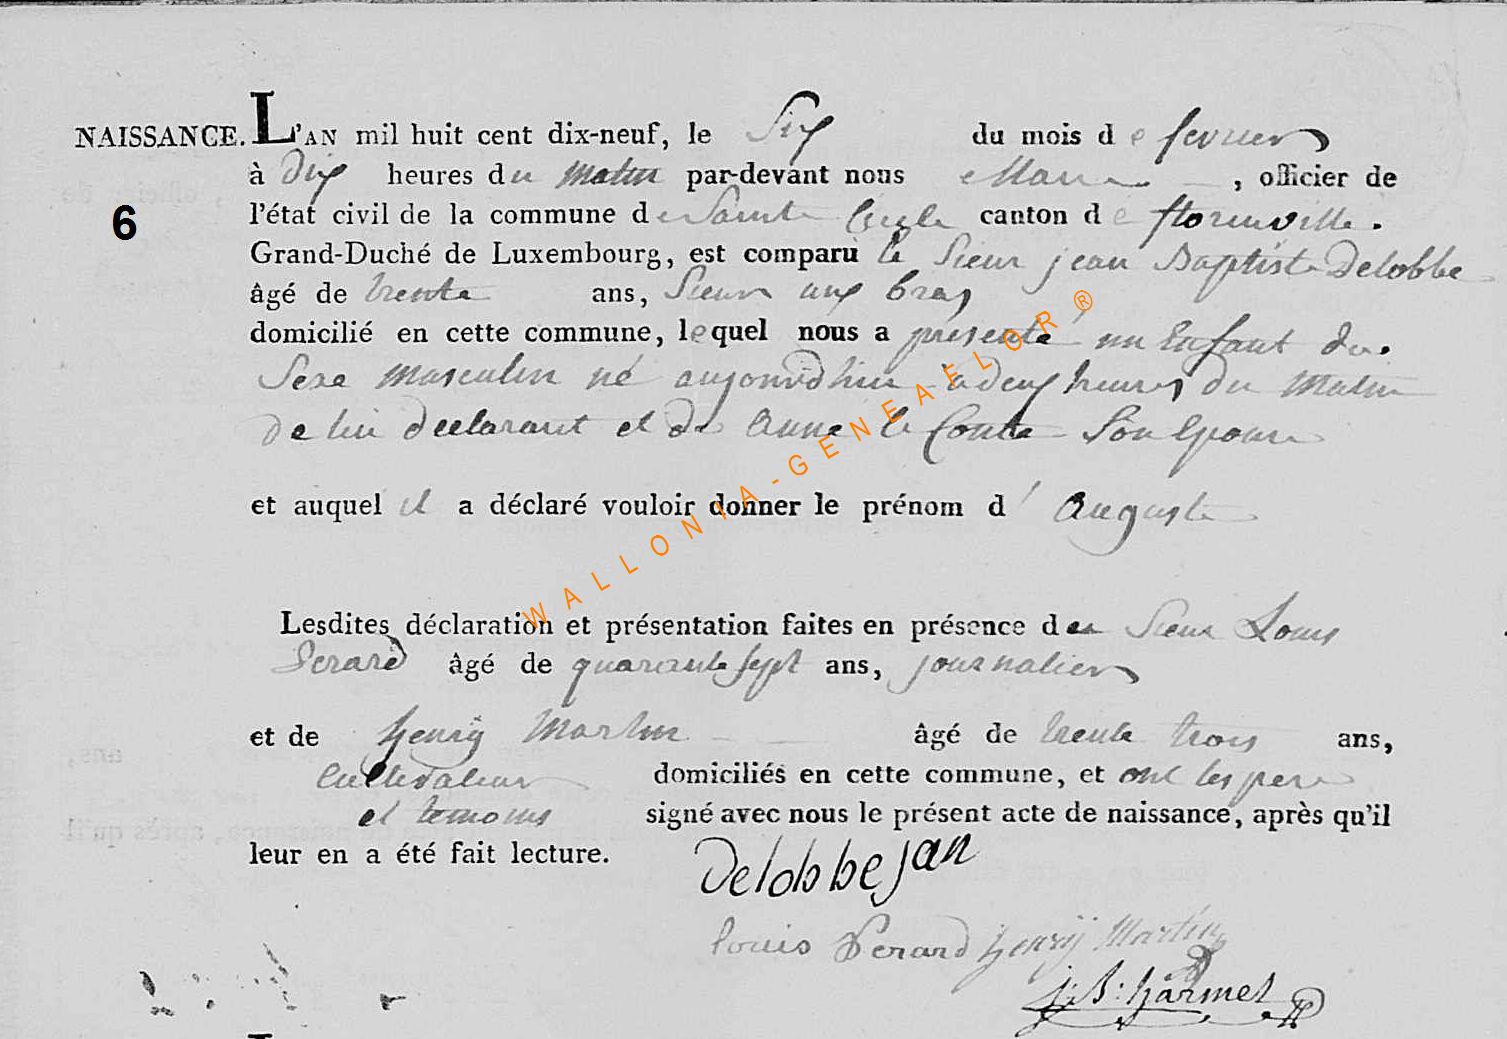 NAISSANCE. L'AN mil huit cent dix-neuf, le Six du mois de fevrier
à Dix heures du matin par-devant nous Maire, officier de
6
l'état civil de la commune de Sainte Cecile canton de florenville.
Grand-Duché de Luxembourg, est comparu le Sieur jean Baptiste Delobbe
âgé de trente ans, Sieur aux bras
domicilié en cette commune, lequel nous a présenté un Enfant du
Sexe masculin né aujourd'hui à deux heures du Matin
De lui declarant et de Anne le Conte Son Epouse
et auquel il a déclaré vouloir donner le prénom d' Auguste
WALLONIA-GENEAELOR ®
Lesdites déclaration et présentation faites en présence des Sieur Louis
Perard âgé de quarante sept ans, journalier
et de henrÿ Martin âgé de trente trois ans,
Cultivateur domiciliés en cette commune, et ont les pere
et temoins signé avec nous le présent acte de naissance, après qu'il
leur en a été fait lecture.
Delobbe jan
louis Perard henrÿ Martin
J: B: harmel